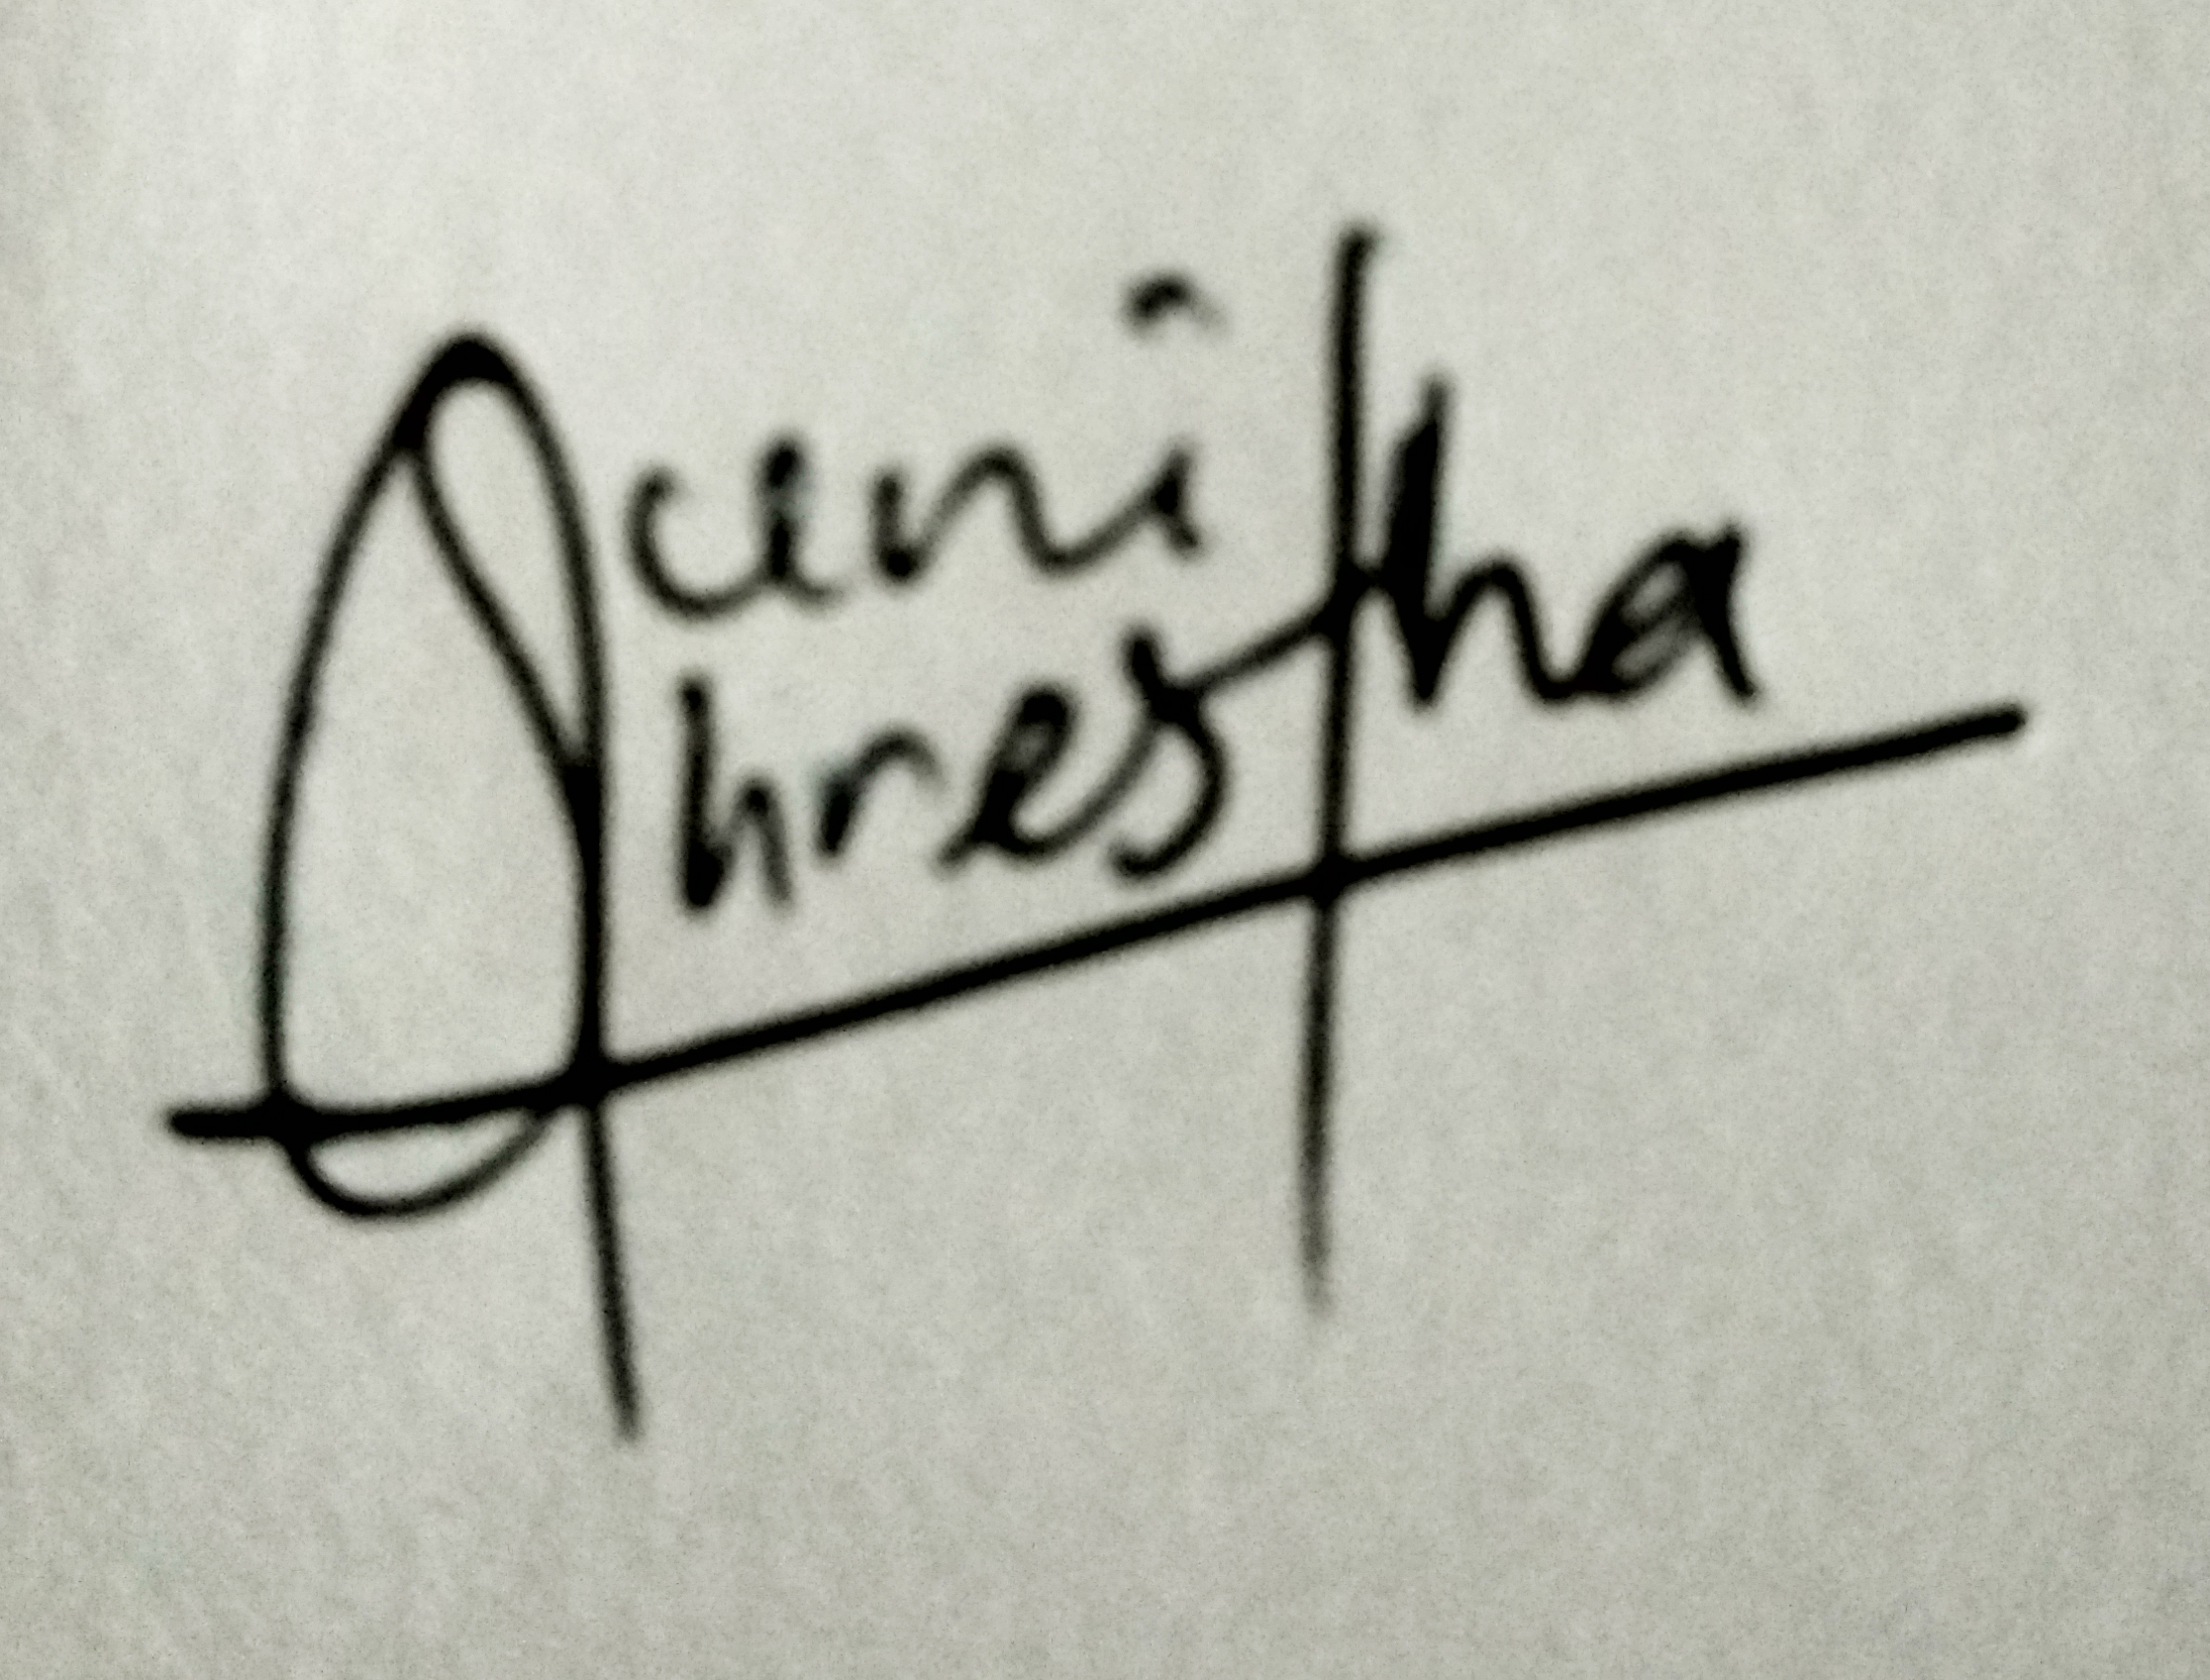 Suni
Shrestha